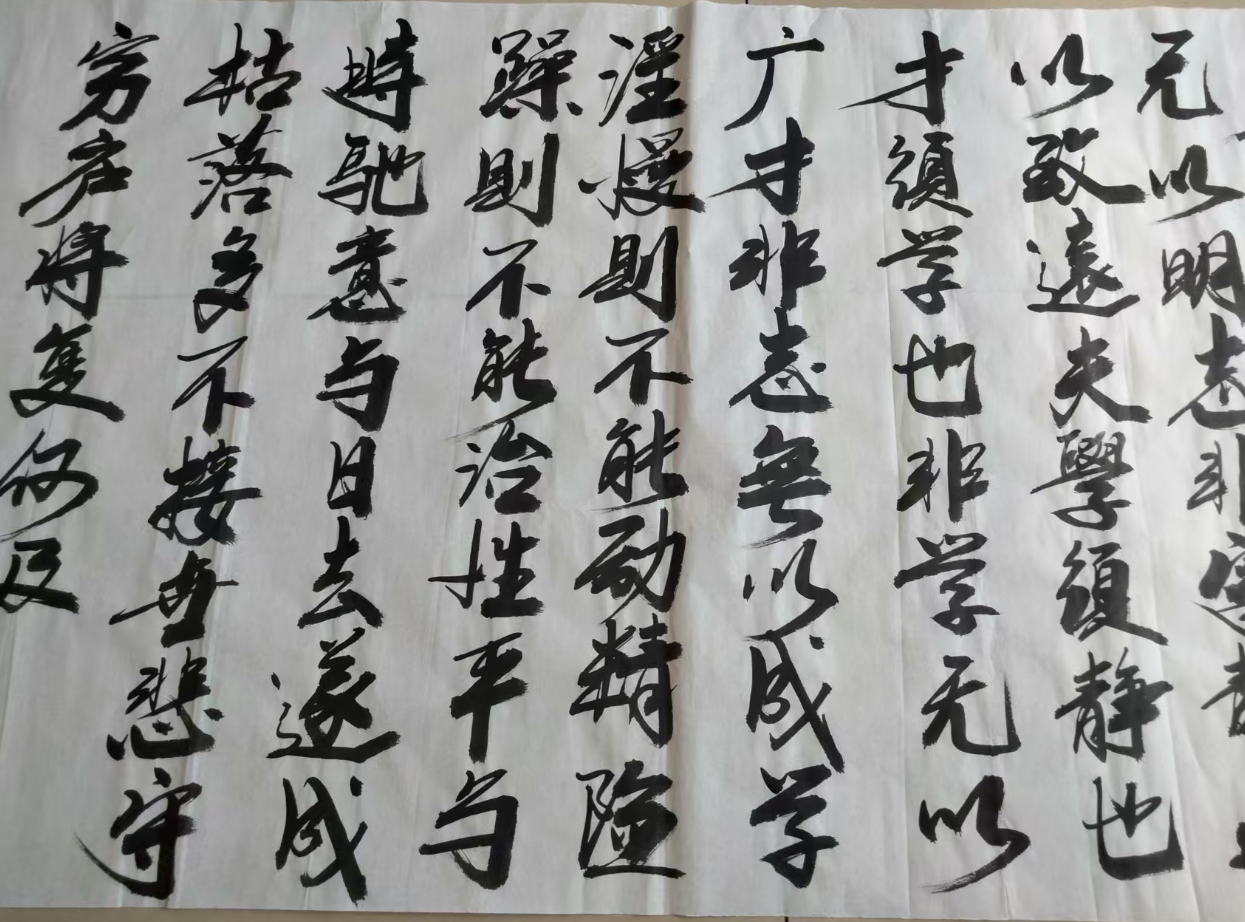 无以明志非
以致遠夫學須静也
才須学也非学无以
广才非志無以成学
淫慢則不能励精险
躁則不能治性平与
時馳意与日去遂成
枯落多不接世悲守
穷庐将复何及